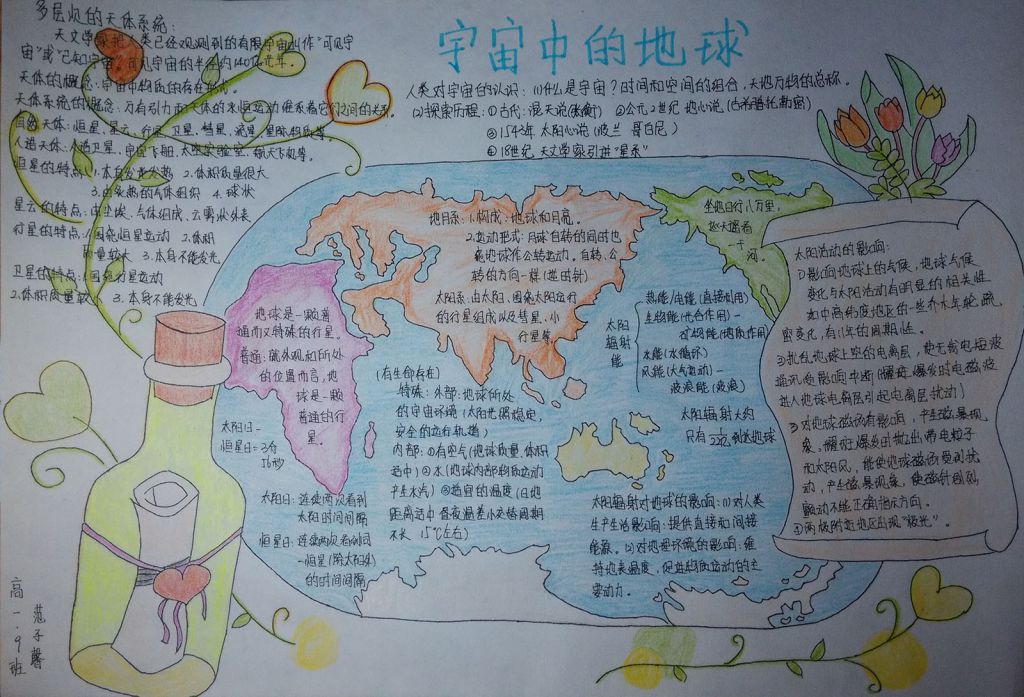 宇宙中的地球
多层次的天体系统:
天文学家把人类已经观测到的有限宇宙叫作"可见宇
宙"或"已知宇宙"。可见宇宙的半径约140亿光年。
天体的概念:宇宙中物质的存在形式。
天体系统的概念:万有引力和天体的永恒运动维系着它们之间的关系。
自然天体:恒星、星云、行星、卫星、彗星、流星、星际物质等。
人造天体:人造卫星、宇宙飞船、太空实验室、航天飞机等。
恒星的特点:1.本身发光发热 2.体积质量很大
3.由炙热的气体组织 4.球状
星云的特点:由尘埃、气体组成,云雾状外表
行星的特点:1.围绕恒星运动 2.体积
质量较大 3.本身不能发光
卫星的特点:1.围绕行星运动
2.体积质量较 3.本身不能发光
人类对宇宙的认识:(1)什么是宇宙?时间和空间的组合,天地万物的总称。
(2)探索历程:①古代:浑天说(张衡) ②公元2世纪 地心说(古希腊托勒密)
③1543年 太阳心说(波兰 哥白尼)
④18世纪 天文学家引进"星系"
地月系:1.构成:地球和月亮。
2.运动形式:月球自转的同时也
氣地球作公转运动。自转、公
转的方向一样(逆时针)
太阳系:由太阳、围绕太阳运行
的行星组成以及彗星、小
行星等。
坐地日行八万里,
巡天遥看
一千
河。
地球是一颗普
通而又特殊的行星。
普通:就外观和所处
的位置而言,地
球是一颗
普通的行
星。
(有生命存在)
特殊:外部:地球所处
的宇宙环境(太阳光照稳定,
安全的运行轨道)
内部:①有空气(地球质量、体积
适中)②水(地球内部物质运动
产生水汽)③适宜的温度(日地
距离适中 昼夜温差小交替周期
不长 15℃左右)
太阳日-
恒星日=3分
56秒
太阳日:连续两次看到
太阳的时间间隔
恒星日:连续两次看到同
一恒星(除太阳外)
的时间间隔
太阳
辐射
能
热能/电能(直接利用)
生物能(光合作用)-
矿物能(地质作用)
水能(水循环)
风能(大气运动)-
波浪能(波浪)
太阳辐射大约
只有 到达地球
太阳辐射对地球的影响:(1)对人类
生产生活影响:提供直接和间接
能源。(2)对地理环境的影响:维
持地表温度,促进物质运动的主
要动力。
太阳活动的影响:
1)影响地球上的气候,地球气候
变化与太阳活动有明显的相关性
如中高纬度地区的一些乔木年轮疏,
密变化,有11年的周期性。
2)扰乱地球上空的电离层,使无线电短波
通讯受影响中断(耀斑爆发时电磁波
进入地球电离层引起电离层扰动)
3)对地球磁场有影响,产生磁暴现
象,耀斑爆发时抛出带电粒子
和太阳风,能使地球磁场受到扰
动,产生磁暴现象,使磁针剧烈
颤动不能正确指示方向。
④两极附近地区出现"极光"。
高一.9班
范子馨